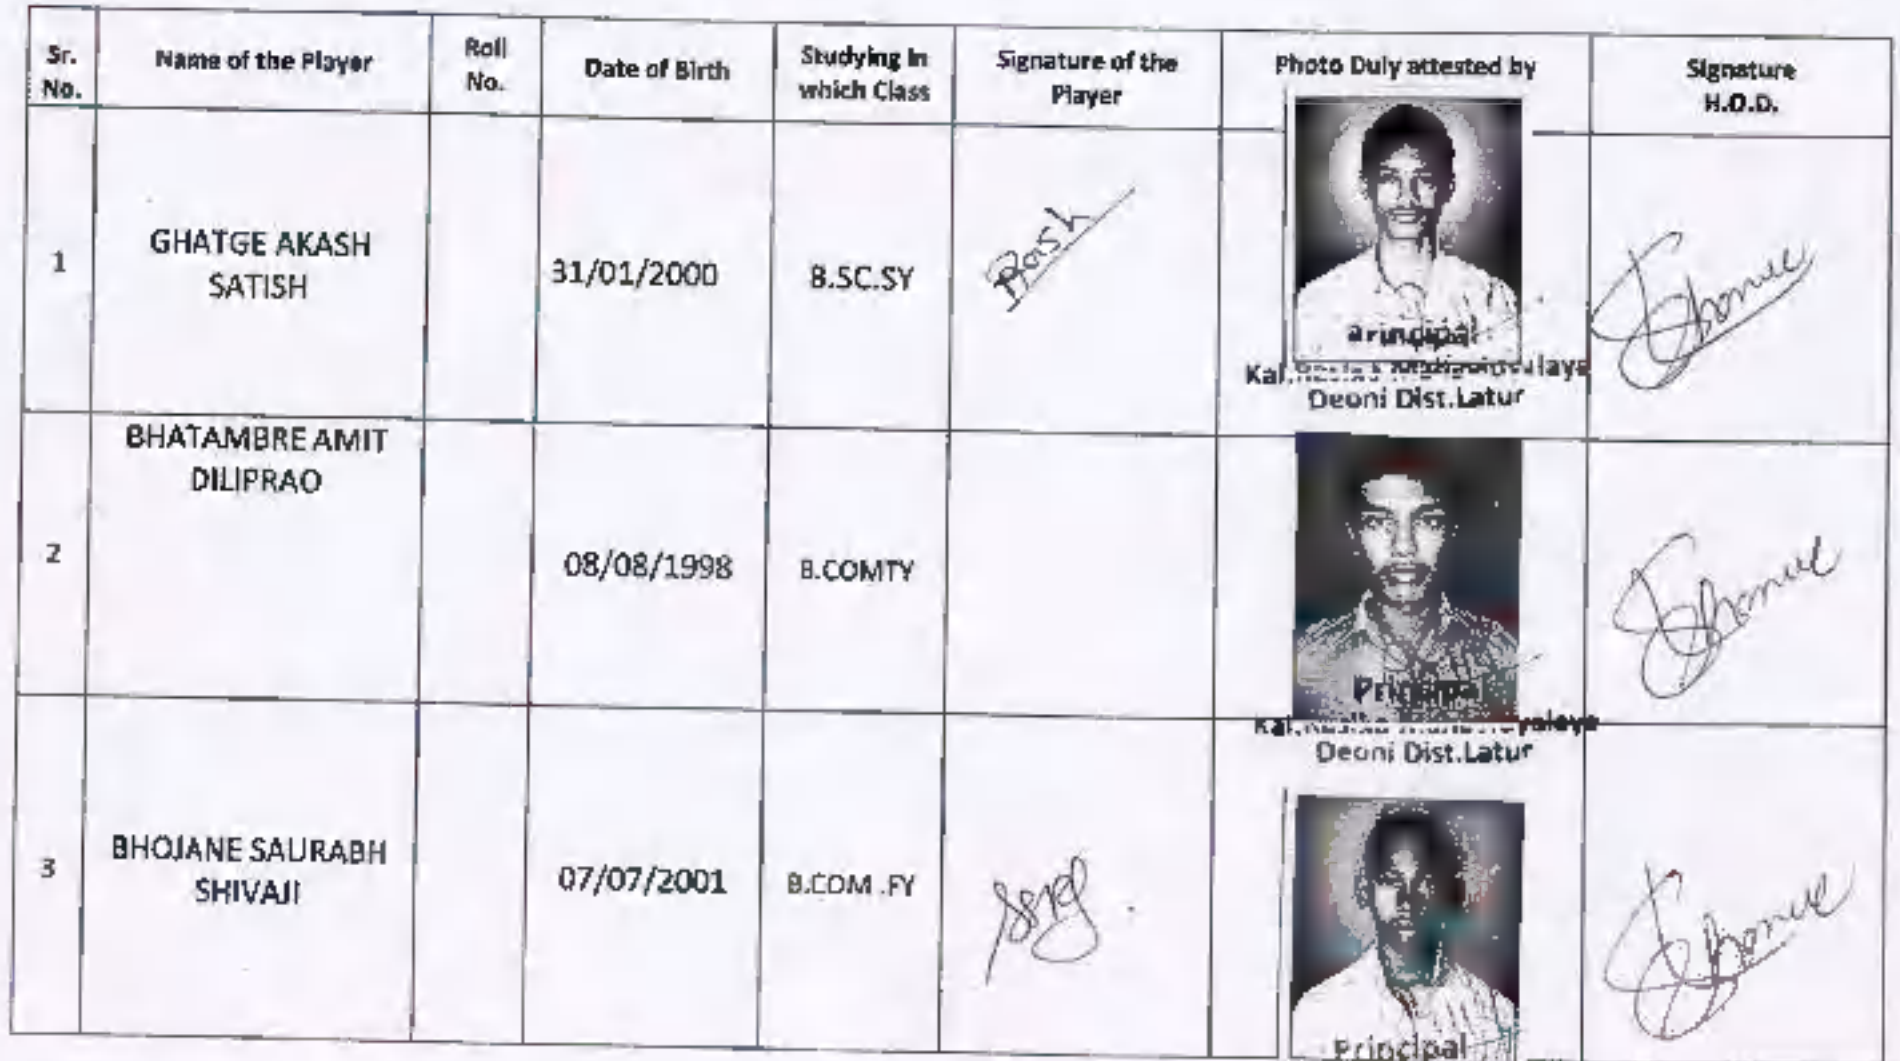 Sr. No.
Name of the Player
Roll No.
Date of Birth
Studying in which Class
Signature of the Player
Photo Duly attested by
Signature H.O.D.
1
GHATGE AKASH
SATISH
31/01/2000
B.SC.SY
Principal
Deoni Dist.Latur
2
BHATAMBRE AMIT
DILIPRAO
08/08/1998
B.COMTY
Principal
Deoni Dist.Latur
3
BHOJANE SAURABH
SHIVAJI
07/07/2001
B.COM .FY
Principal